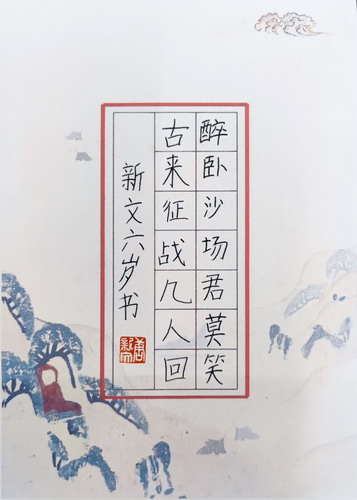 醉卧沙场君莫笑
古来征战几人回
新文六岁书